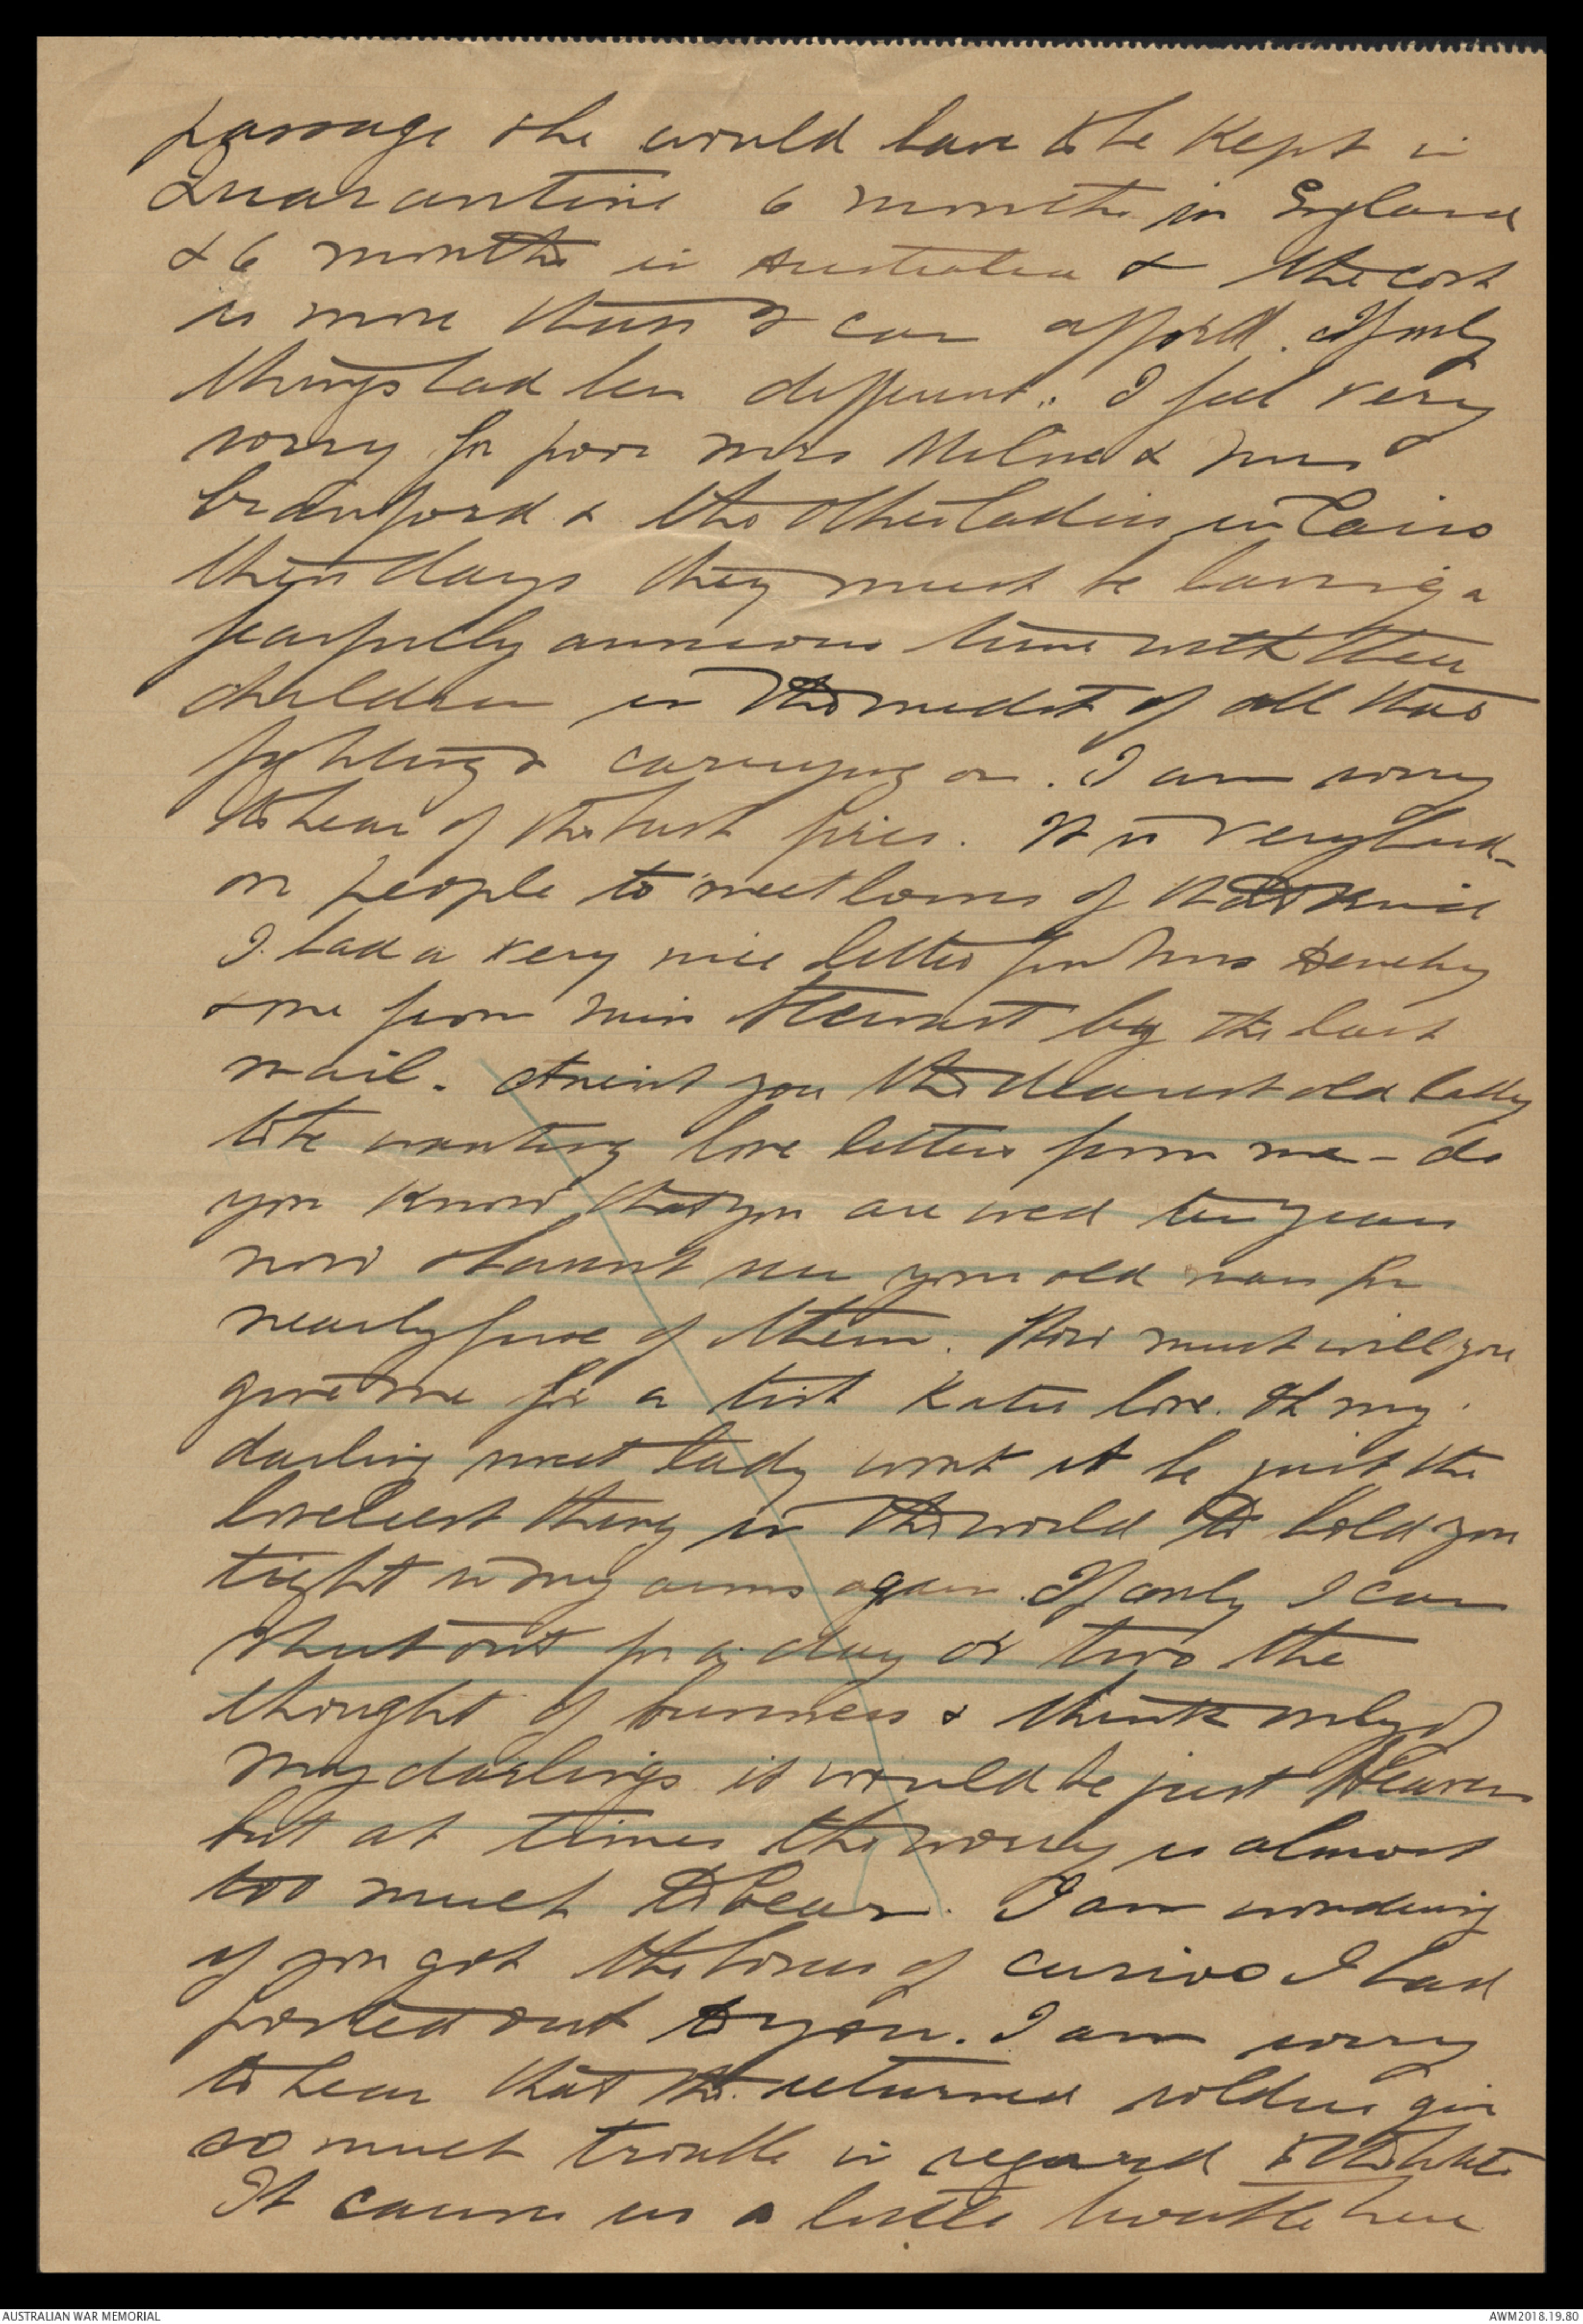 passage she would have to be kept in
Quarantine 6 months in England
& 6 months in Australia & the cost
is more than I can afford. If only
things had been different. I feel very
sorry for poor Mrs Milne & Mrs
Brandford & the other ladies in Cairo
these days they must be having a
fearfully anxious time with their
children in the midst of all this
fighting & carrying on. I am sorry
to hear of the bush fires. It is very hard
on people to meet losses of that kind
I had a very nice letter from Mrs
& one from Miss Stewart by the last
mail. Arent you the dearest old
wanting love letters from me - do
you know that you are wed ten years
now & havent seen your old man for
nearly five of them. How much will you
give me for a kiss Katie love. Oh my
darling sweet lady wont it be just the
loveliest thing in the world to hold you
tight in my arms again. If only I can
shut out for a day or two the
thought of business & think only of
my darlings it would be just Heaven
but at times the worry is almost
too much to bear. I am wondering
if you got the boxes of curios I had
posted out to you. I am sorry
to hear that the returned soldiers give
so much trouble in regard to the
It causes us a little trouble here
AUSTRALIAN WAR MEMORIAL
AWM2018.19.80